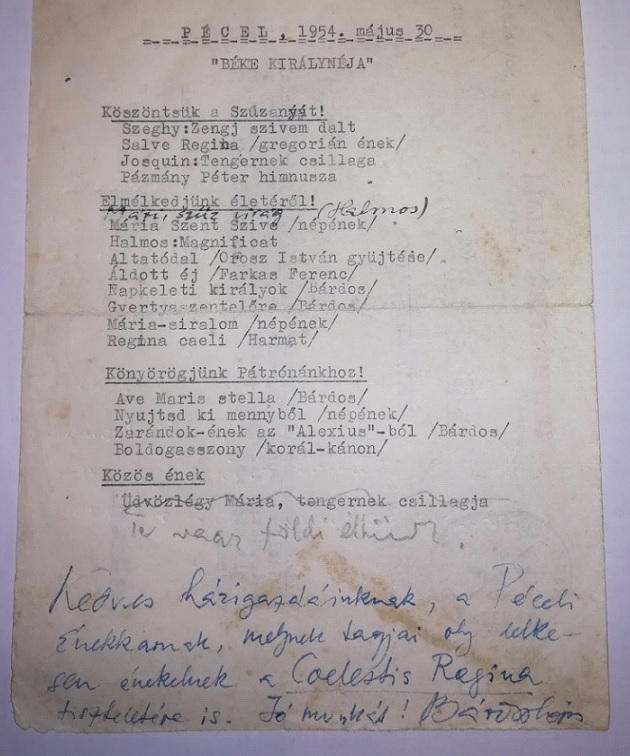 P É C E L , 1954. május 30
"BÉKE KIRÁLYNÉJA"
Köszöntsük a Szüzanyát!
Szeghy:Zengj szivem dalt
Salve Regina /gregorián ének/
Josquin:Tengernek csillaga
Pázmány Péter himnusza
Elmélkedjünk életéről!
szűz virág (Halmos)
Mária Szent Szive /népének/
Halmos:Magnificat
Altatódal /Orosz István gyüjtése/
Áldott éj /Farkas Ferenc/
Napkeleti királyok /Bárdos/
Gyertyaszentelőre /Bárdos/
Mária-siralom /népének/
Regina caeli /Harmat/
Könyörögjünk Pátrónánkhoz!
Ave Maris stella /Bárdos/
Nyujtsd ki mennyből /népének/
Zarándok-ének az "Alexius"-ból /Bárdos/
Boldogasszony /korál-kánon/
Közös ének
Üdvözlégy Mária, tengernek csillagja
Te vagy földi
Kedves házigazdáinknak, a Péceli
Énekkarnak, melynek tagjai oly lelke-
sen énekelnek a Coelestis Regina
tiszteletére is. Jó munkát! Bárdos Lajos